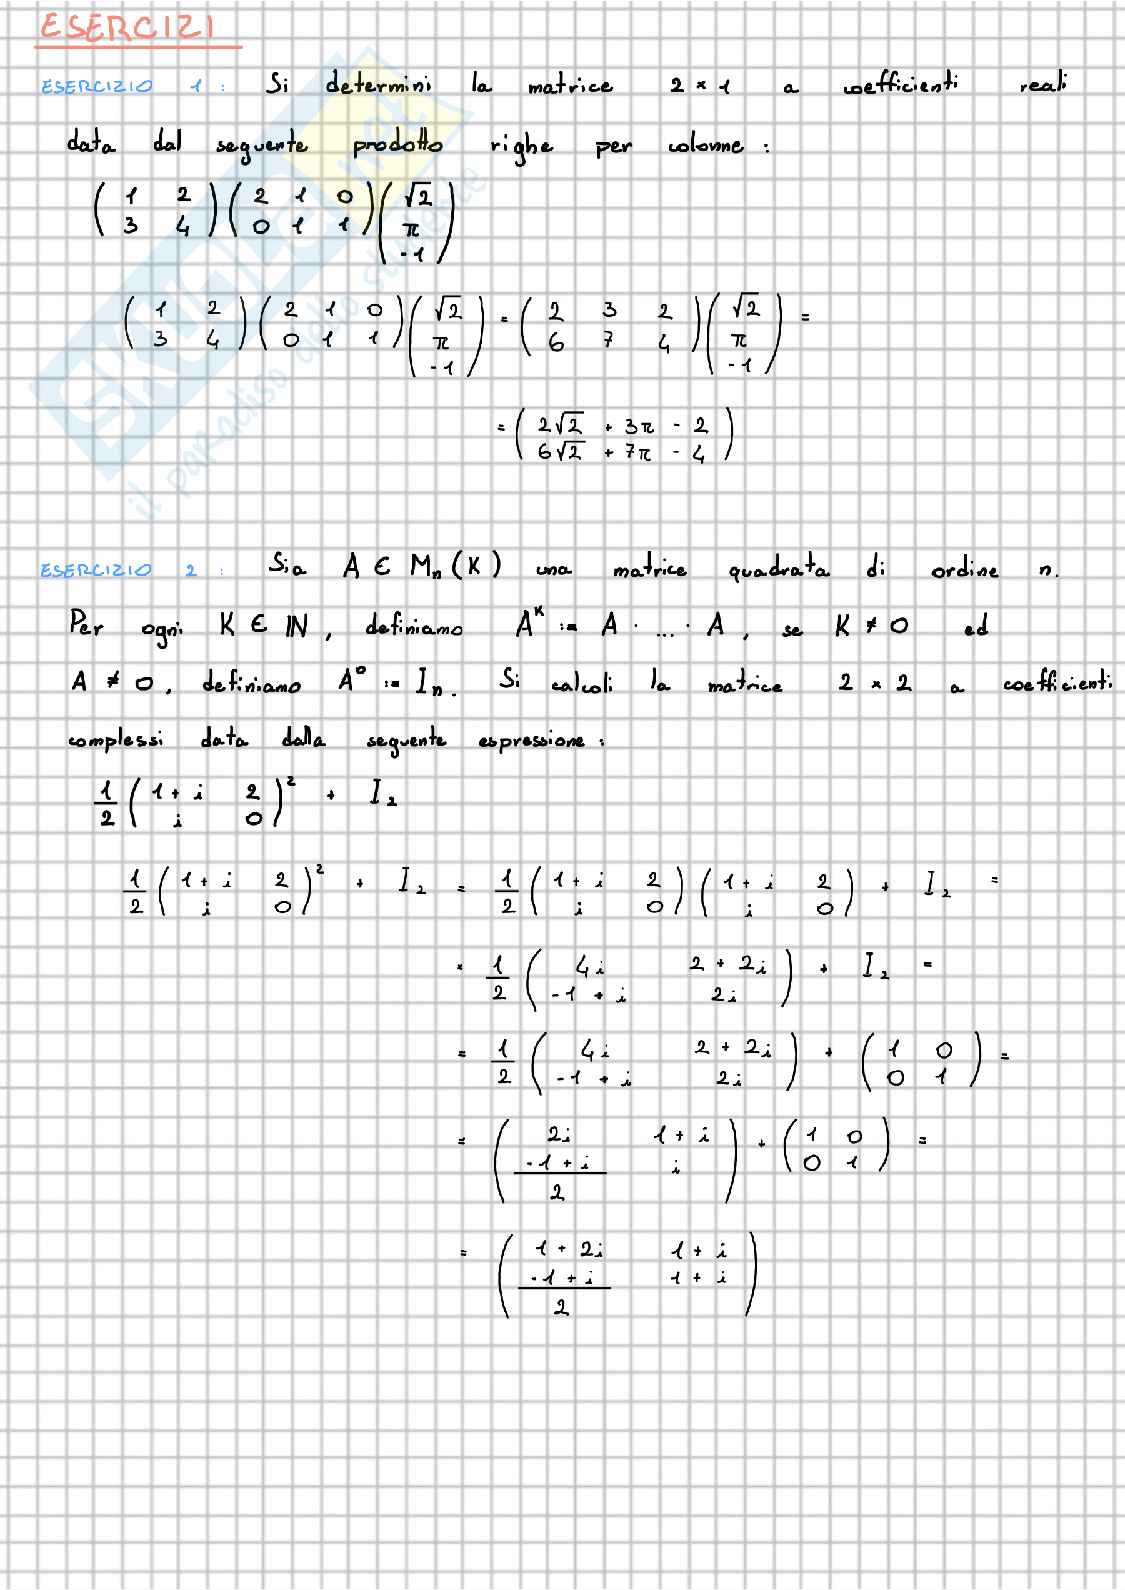 ESERCIZI
ESERCIZIO 1 : Si determini la matrice 2 × 1 a coefficienti reali
data dal seguente prodotto righe per colonne :
( 1 2 ; 3 4 ) ( 2 1 0 ; 0 1 1 ) ( √2 ; π ; -1 )
( 1 2 ; 3 4 ) ( 2 1 0 ; 0 1 1 ) ( √2 ; π ; -1 ) = ( 2 3 2 ; 6 7 4 ) ( √2 ; π ; -1 ) =
= ( 2√2 + 3π - 2 ; 6√2 + 7π - 4 )
ESERCIZIO 2 : Sia A ∈ Mₙ (K) una matrice quadrata di ordine n.
Per ogni K ∈ IN, definiamo Aᴷ := A · ... · A, se K ≠ 0 ed
A ≠ 0, definiamo A⁰ := Iₙ. Si calcoli la matrice 2 × 2 a coefficienti
complessi data dalla seguente espressione :
1/2 ( 1 + i 2 ; i 0 )² + I₂
1/2 ( 1 + i 2 ; i 0 )² + I₂ = 1/2 ( 1 + i 2 ; i 0 ) ( 1 + i 2 ; i 0 ) + I₂ =
= 1/2 ( 4i 2 + 2i ; -1 + i 2i ) + I₂ =
= 1/2 ( 4i 2 + 2i ; -1 + i 2i ) + ( 1 0 ; 0 1 ) =
= ( 2i 1 + i ; (-1 + i)/2 i ) + ( 1 0 ; 0 1 ) =
= ( 1 + 2i 1 + i ; (-1 + i)/2 1 + i )
SKUOLA.net
il paradiso dello studente